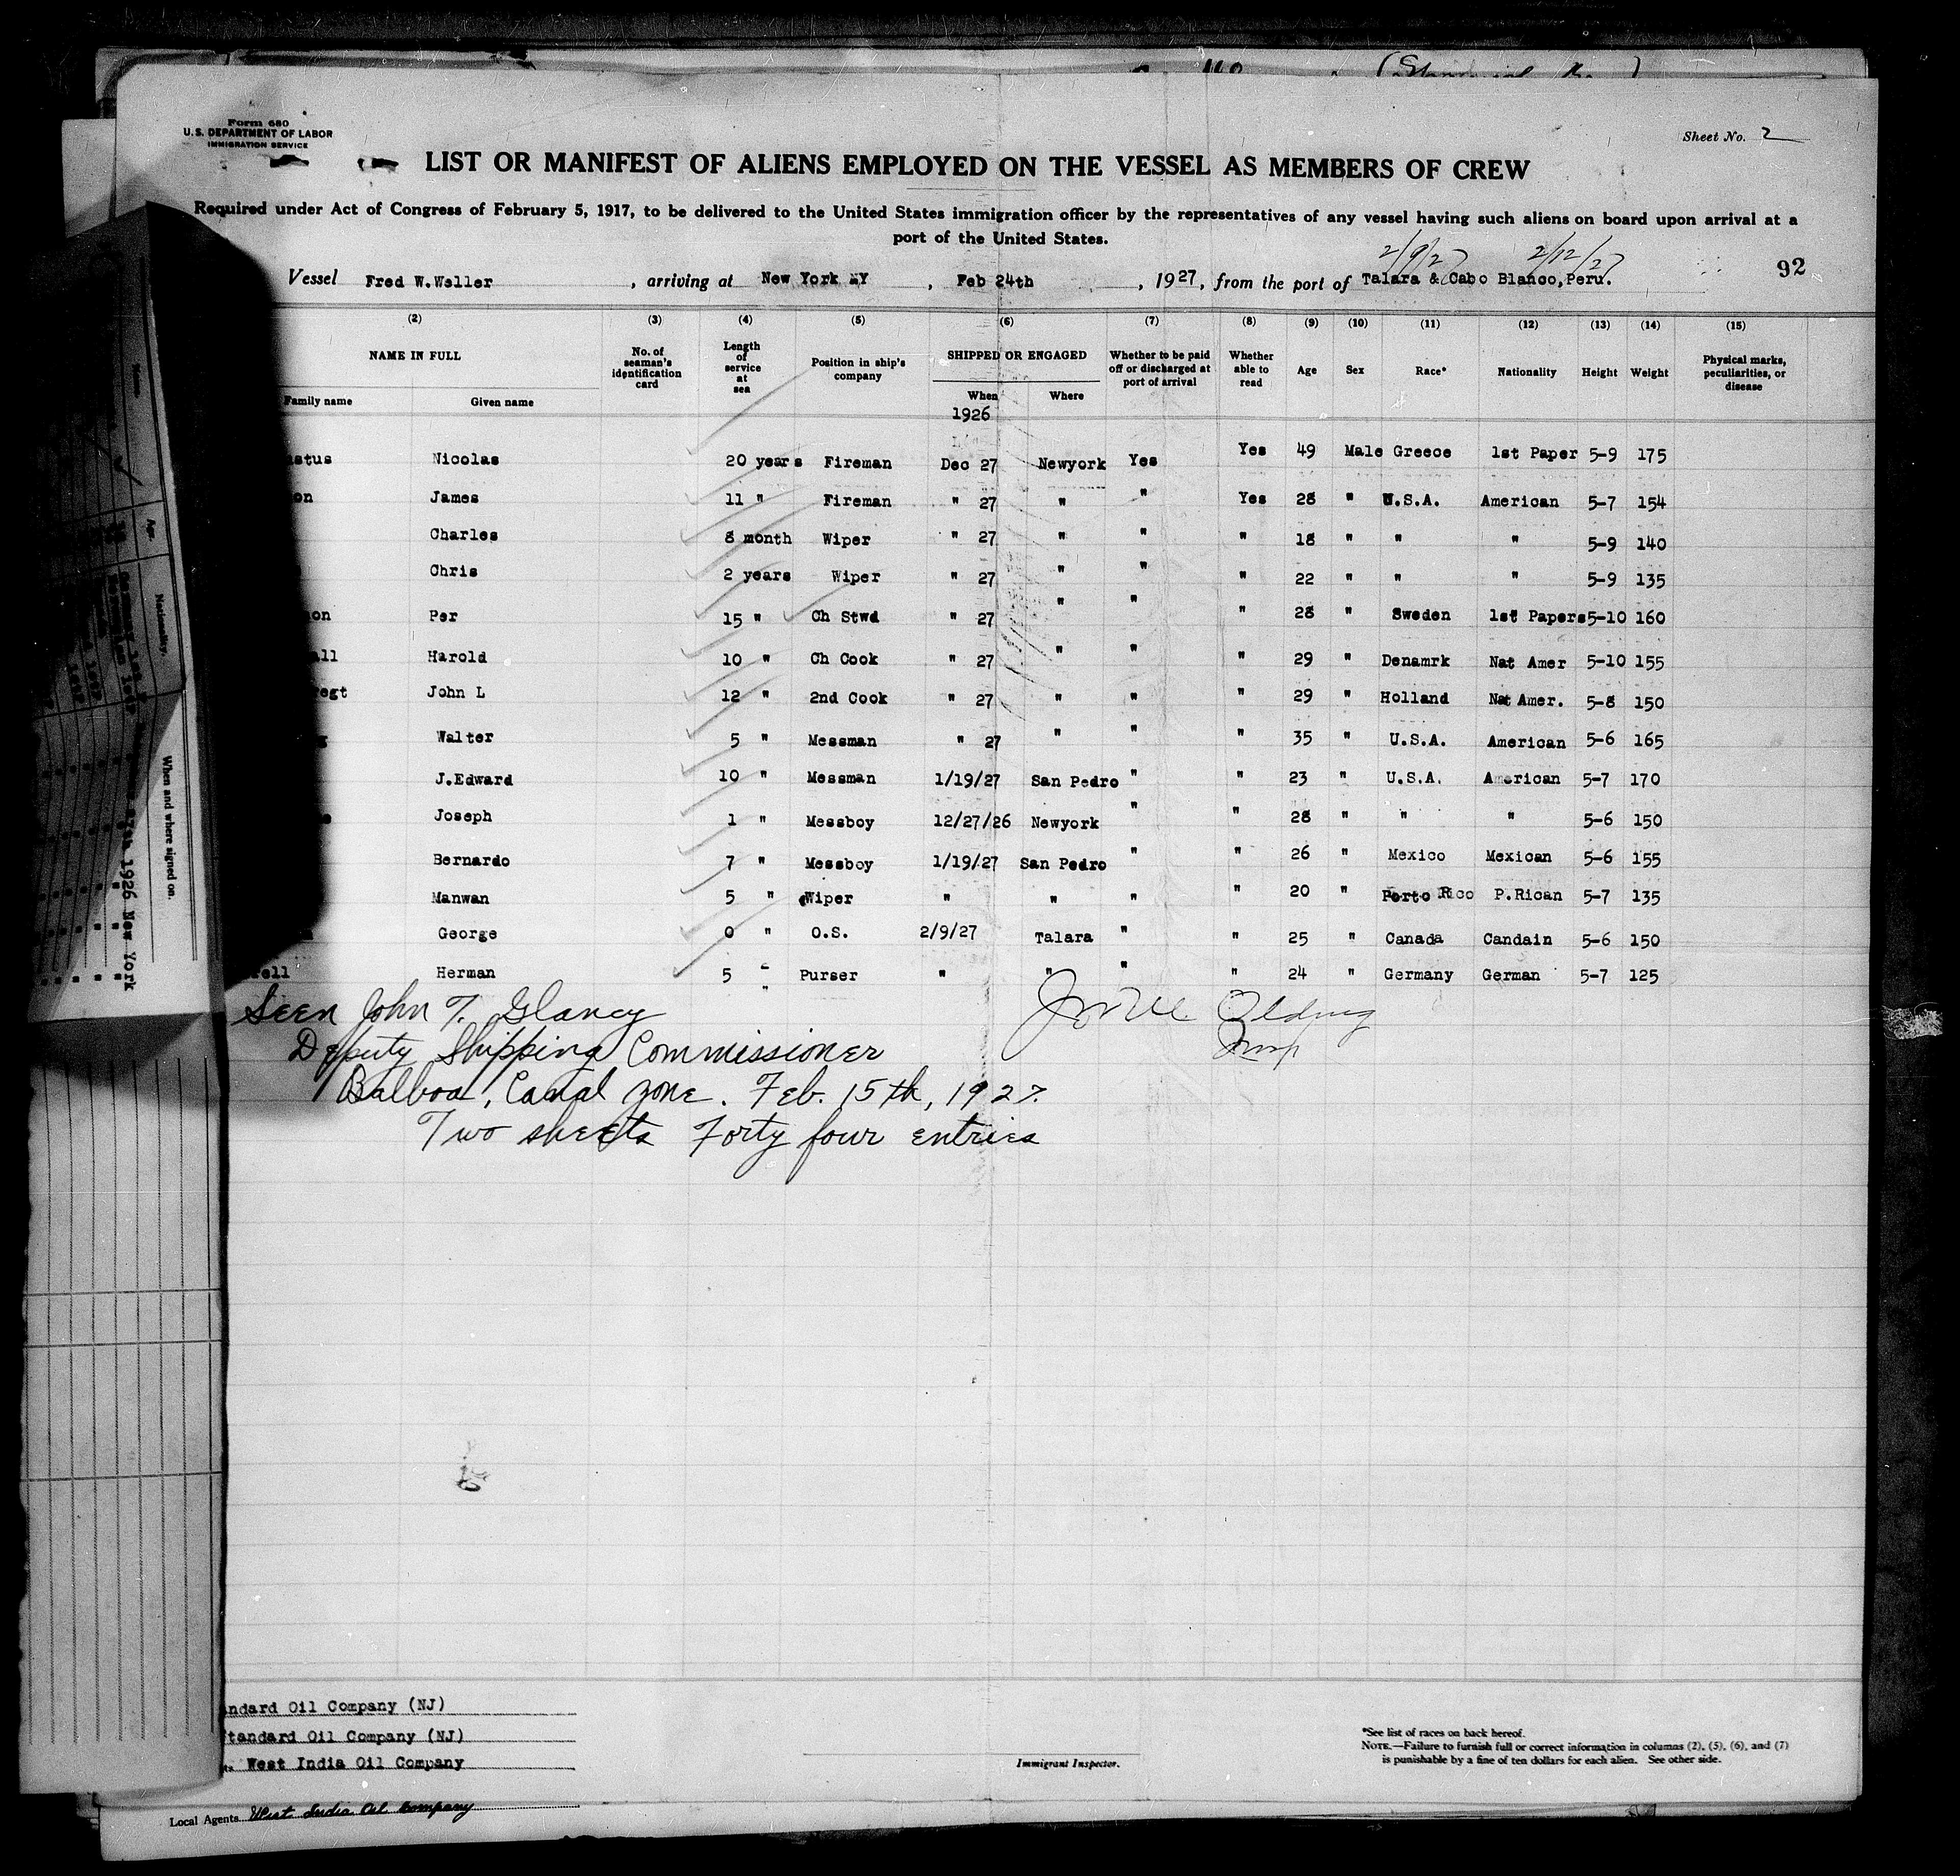 Form 680
U.S. DEPARTMENT OF LABOR
IMMIGRATION SERVICE
Sheet No. 2
LIST OR MANIFEST OF ALIENS EMPLOYED ON THE VESSEL AS MEMBERS OF CREW
Required under Act of Congress of February 5, 1917, to be delivered to the United States immigration officer by the representatives of any vessel having such aliens on board upon arrival at a
port of the United States.
2/9/27 2/12/27
Vessel Fred W.Weller, arriving at New York NY, Feb 24th, 1927, from the port of Talara & Cabo Blanco,Peru. 92
(2) (3) (4) (5) (6) (7) (8) (9) (10) (11) (12) (13) (14) (15)
NAME IN FULL No. of seaman's identification card Length of service at sea Position in ship's company SHIPPED OR ENGAGED Whether to be paid off or discharged at port of arrival Whether able to read Age Sex Race* Nationality Height Weight Physical marks, peculiarities, or disease
Family name Given name When Where
1926
Nicolas 20 years Fireman Dec 27 Newyork Yes Yes 49 Male Greece 1st Paper 5-9 175
James 11 " Fireman " 27 " " Yes 28 " U.S.A. American 5-7 154
Charles 8 month Wiper " 27 " " " 18 " " " 5-9 140
Chris 2 years Wiper " 27 " " " 22 " " " 5-9 135
Per 15 " Ch Stwd " 27 " " " 28 " Sweden 1st Papers 5-10 160
Harold 10 " Ch Cook " 27 " " " 29 " Denamrk Nat Amer 5-10 155
John L 12 " 2nd Cook " 27 " " " 29 " Holland Nat Amer. 5-8 150
Walter 5 " Messman " 27 " " " 35 " U.S.A. American 5-6 165
J.Edward 10 " Messman 1/19/27 San Pedro " " 23 " U.S.A. American 5-7 170
Joseph 1 " Messboy 12/27/26 Newyork " " 28 " " " 5-6 150
Bernardo 7 " Messboy 1/19/27 San Pedro " " 26 " Mexico Mexican 5-6 155
Manwan 5 " Wiper " " " " 20 " Porto Rico P.Rican 5-7 135
George 0 " O.S. 2/9/27 Talara " " 25 " Canada Candain 5-6 150
Herman 5 " Purser " " " " 24 " Germany German 5-7 125
Seen John T. Glancy
Deputy Shipping Commissioner
Balboa, Canal Zone. Feb. 15th, 1927.
Two sheets Forty four entries
Name
Age
Nationality.
When and where signed on.
1926 New York
Standard Oil Company (NJ)
Standard Oil Company (NJ)
West India Oil Company
Immigrant Inspector.
*See list of races on back hereof.
NOTE.—Failure to furnish full or correct information in columns (2), (5), (6), and (7)
is punishable by a fine of ten dollars for each alien. See other side.
Local Agents West India Oil Company